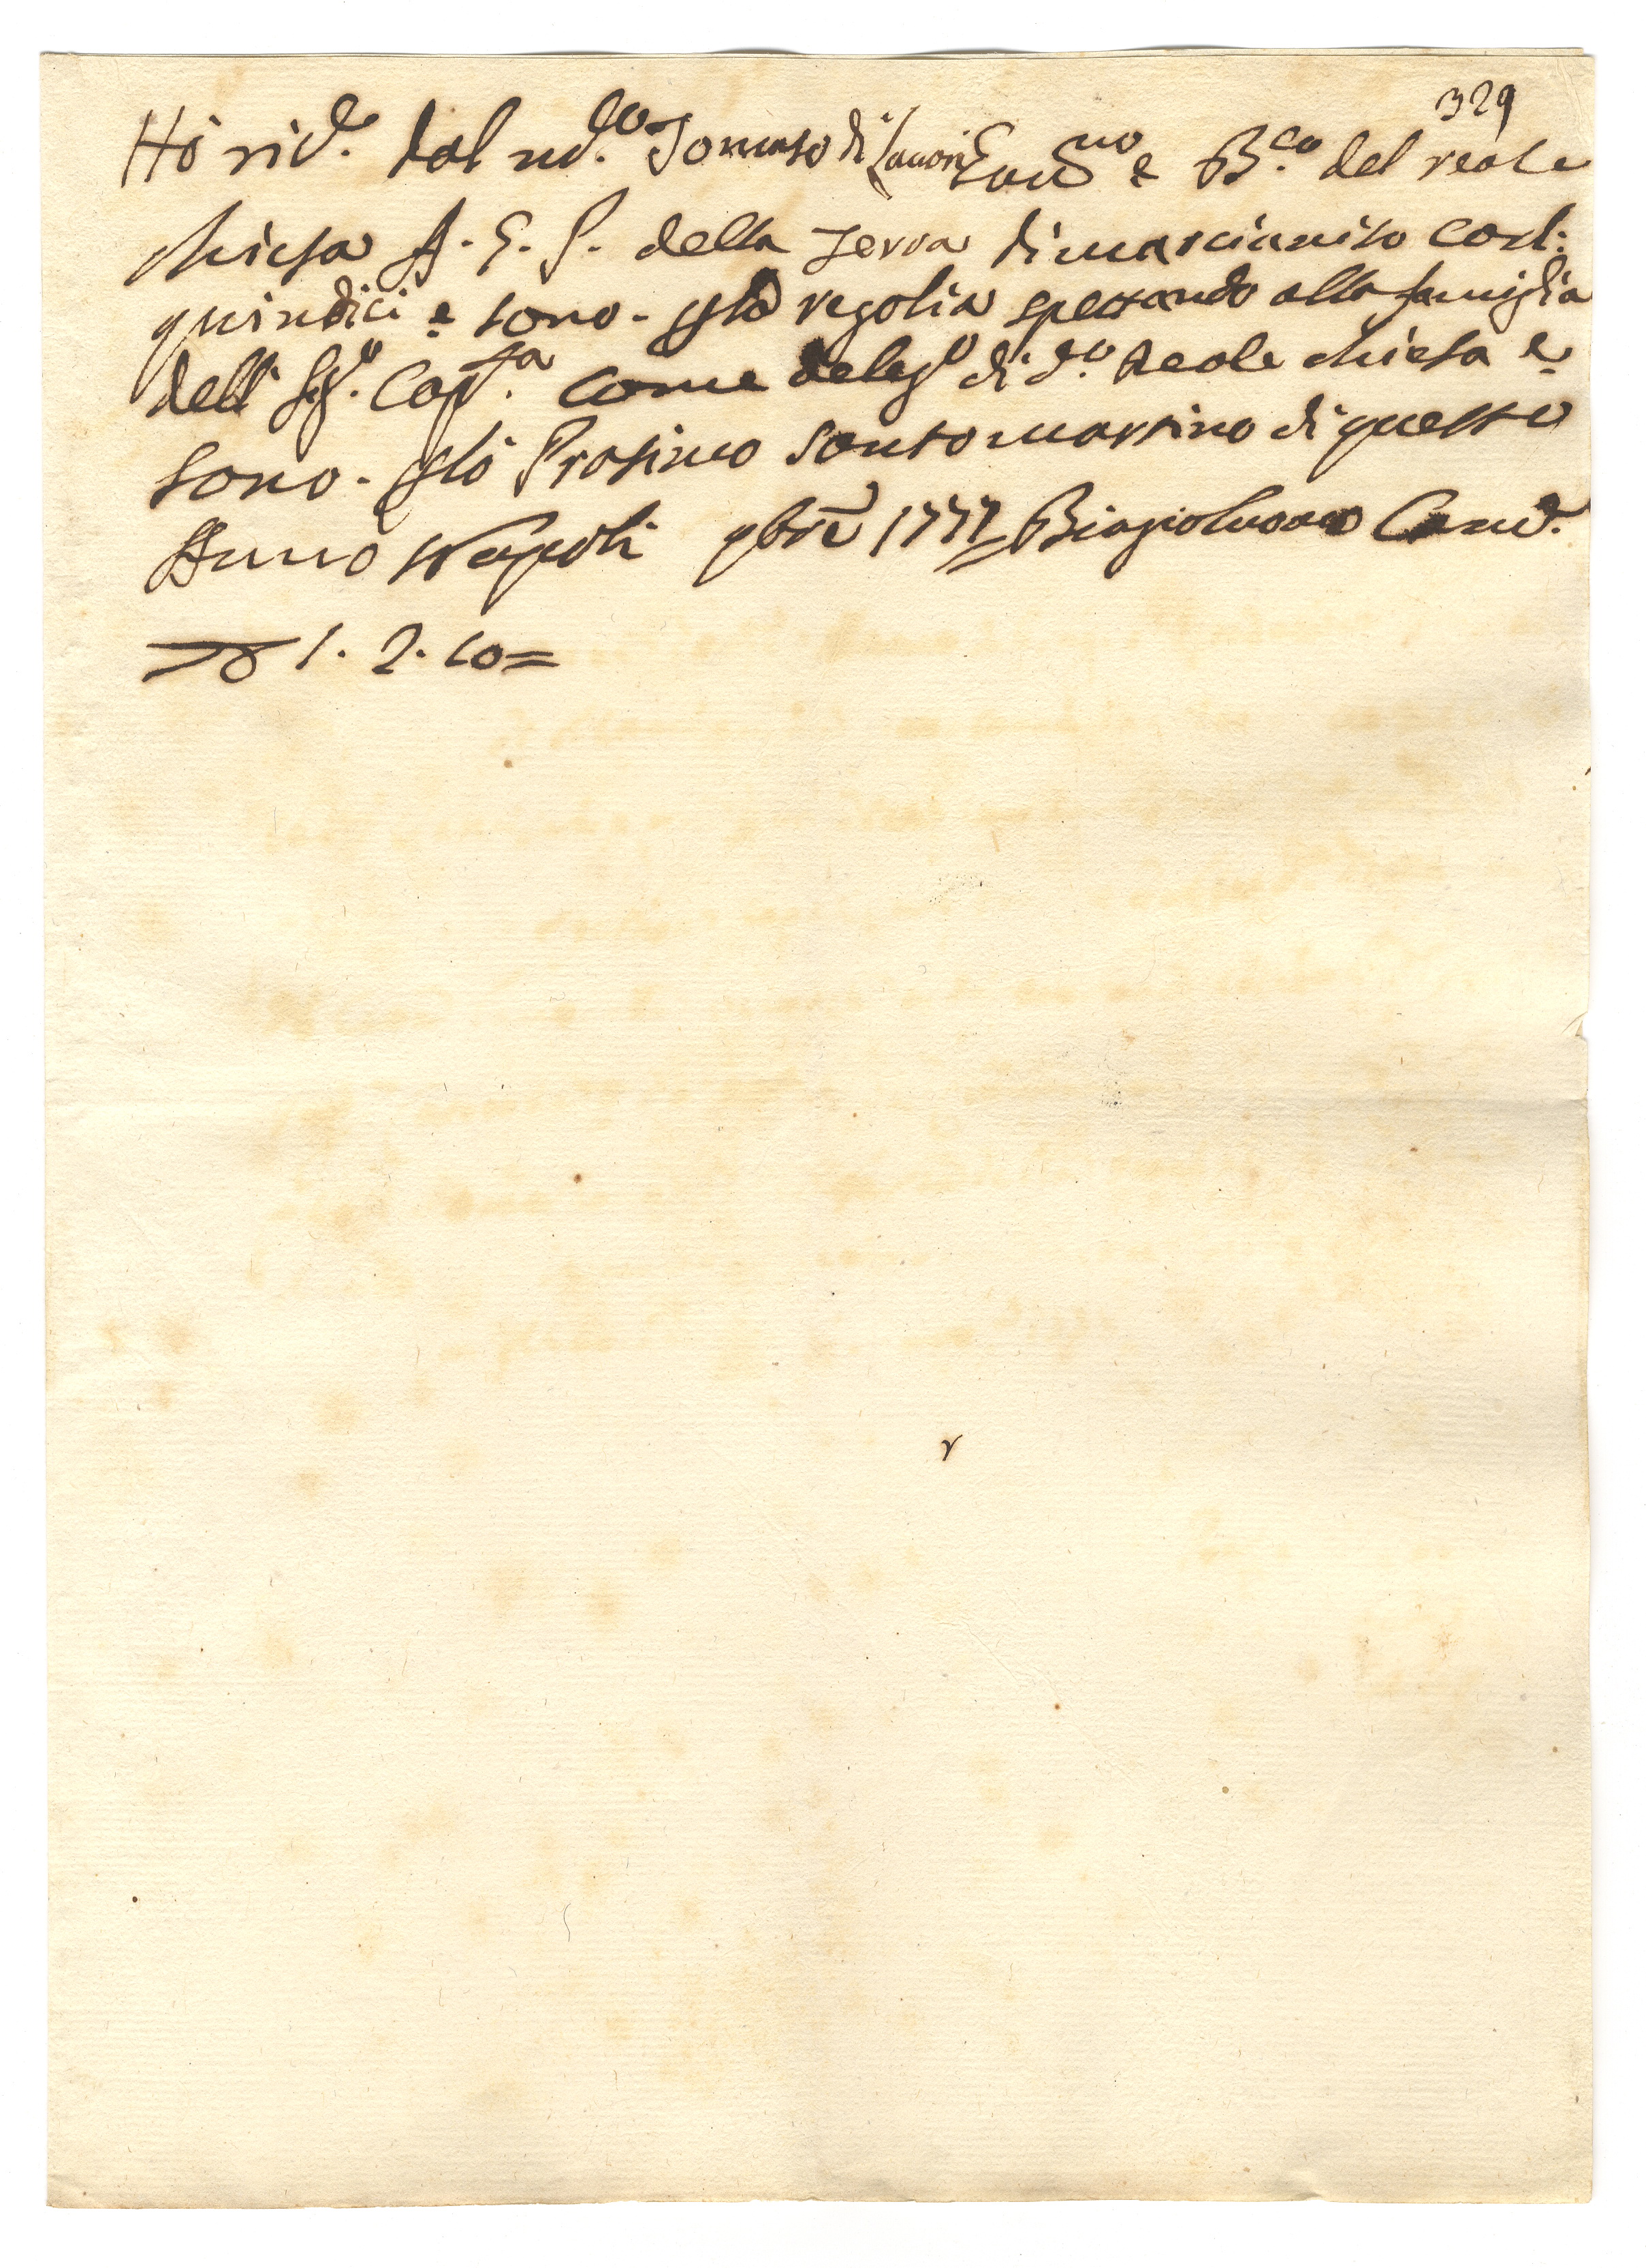 329
Ho ric.e dal md.co Tomaso di Lauori e B.co del reale
chiesa A. G. P. della Terra di marcianiso carl:
quindici e sono. p la regolia spettando alla famiglia
dell Sg.o Cap.ta come deleg.o di d.o Reale chiesa e
sono. p lo Prosimo Santo martino di questo
Anno Napoli 9bre 1777 Biagio
1. 2. 10=